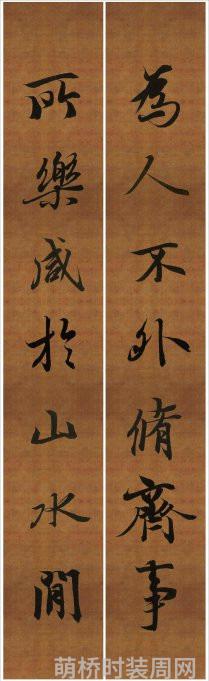 為人不外脩齊事
所樂咸於山水間
萌桥时装周网